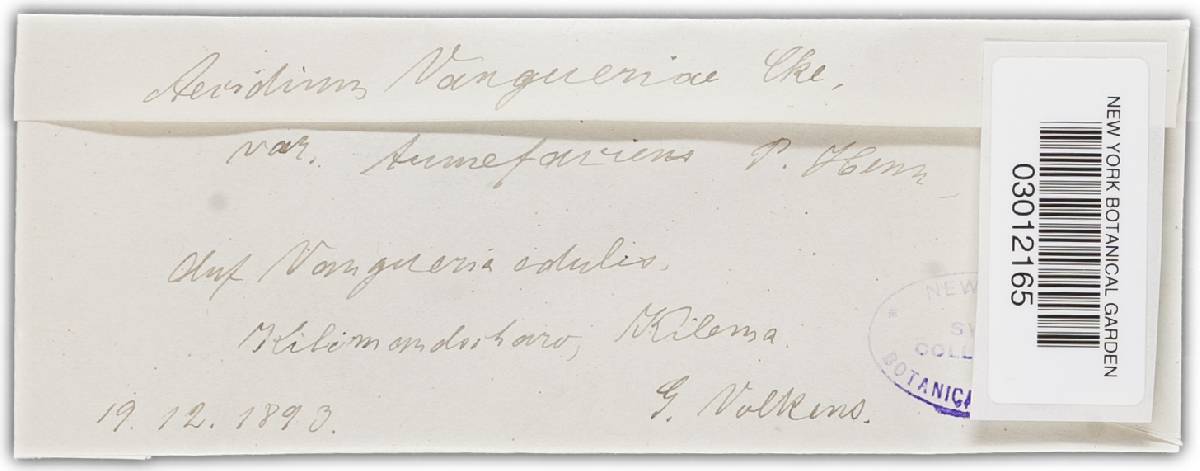 Aecidium Vangueriae Cke.
var. tumefaciens P. Henn
auf Vangueria edulis.
Kilimandscharo, Kilema
19. 12. 1893.
G. Volkens.
NEW YORK BOTANICAL GARDEN
03012165
NEW
COLL
BOTANICA